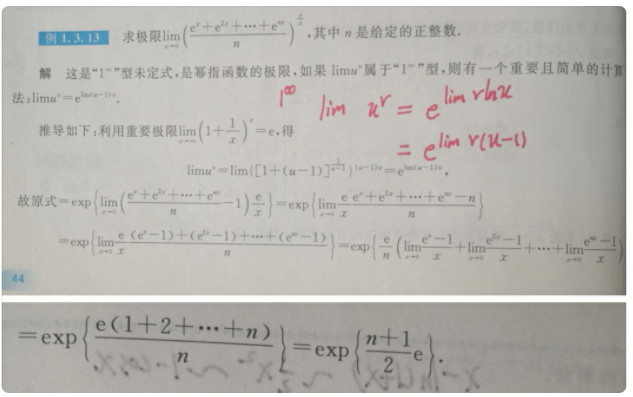 例1.3.13 求极限lim_{x→0}((e^x+e^{2x}+⋯+e^{nx})/n)^{e/x},其中n是给定的正整数.
解 这是“1^∞”型未定式,是幂指函数的极限,如果limu^v属于“1^∞”型,则有一个重要且简单的计算
法:limu^v=e^{lim(u-1)v}.
1^∞ lim u^v = e^{lim v ln u}
= e^{lim v(u-1)}
推导如下:利用重要极限lim_{x→∞}(1+1/x)^x=e,得
limu^v=lim{[1+(u-1)]^{1/(u-1)}}^{(u-1)v}=e^{lim(u-1)v},
故原式=exp{lim_{x→0}((e^x+e^{2x}+⋯+e^{nx})/n-1)e/x}=exp{lim_{x→0} e/x (e^x+e^{2x}+⋯+e^{nx}-n)/n}
=exp{lim_{x→0} e/x ((e^x-1)+(e^{2x}-1)+⋯+(e^{nx}-1))/n}=exp{e/n(lim_{x→0}(e^x-1)/x+lim_{x→0}(e^{2x}-1)/x+⋯+lim_{x→0}(e^{nx}-1)/x)}
44
=exp{e(1+2+⋯+n)/n}=exp{(n+1)/2 e}.